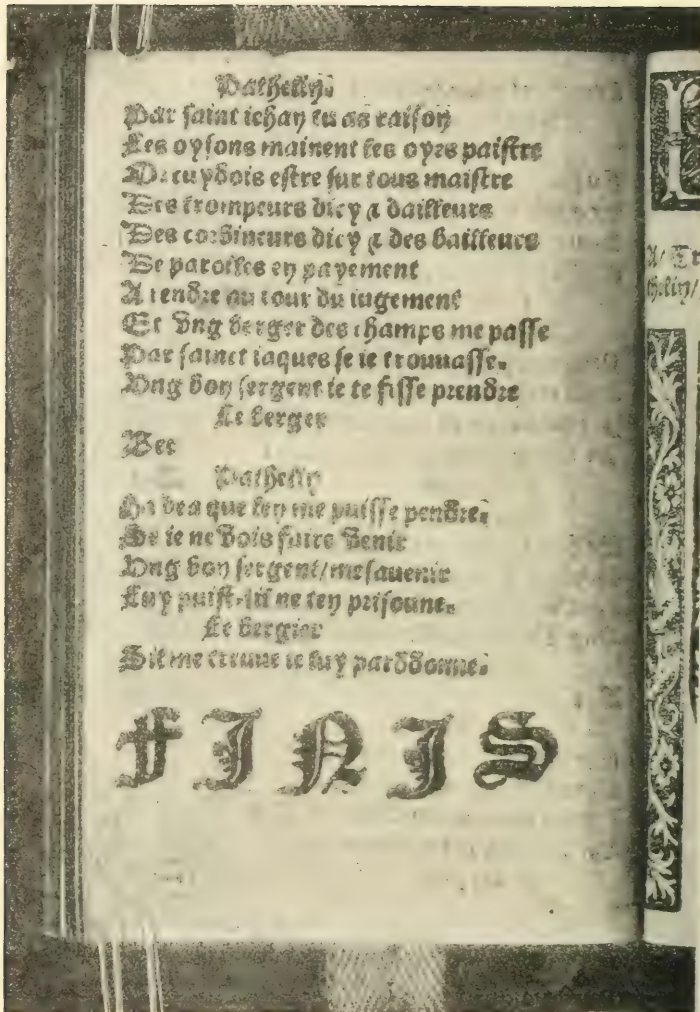 Pathelin.
Par saint iehan tu as raison
Les oysons mainent les oyes paistre
Or cuydois estre sur tous maistre
Des trompeurs dicy & dailleurs
Des corbineurs dicy & des bailleurs
De parolles en payement
A rendre au iour du iugement
Et vng berger des champs me passe
Par sainct iaques se ie trouuasse.
Vng bon sergent ie te fisse prendre
Le berger
Bee
Pathelin
Ha bea que len me puisse pendre.
Se ie ne vois faire venir
Vng bon sergent/mesauenir
Luy puist-il sil ne ten prisonne.
Le bergier
Sil me treuue ie luy pardonne.
FINIS